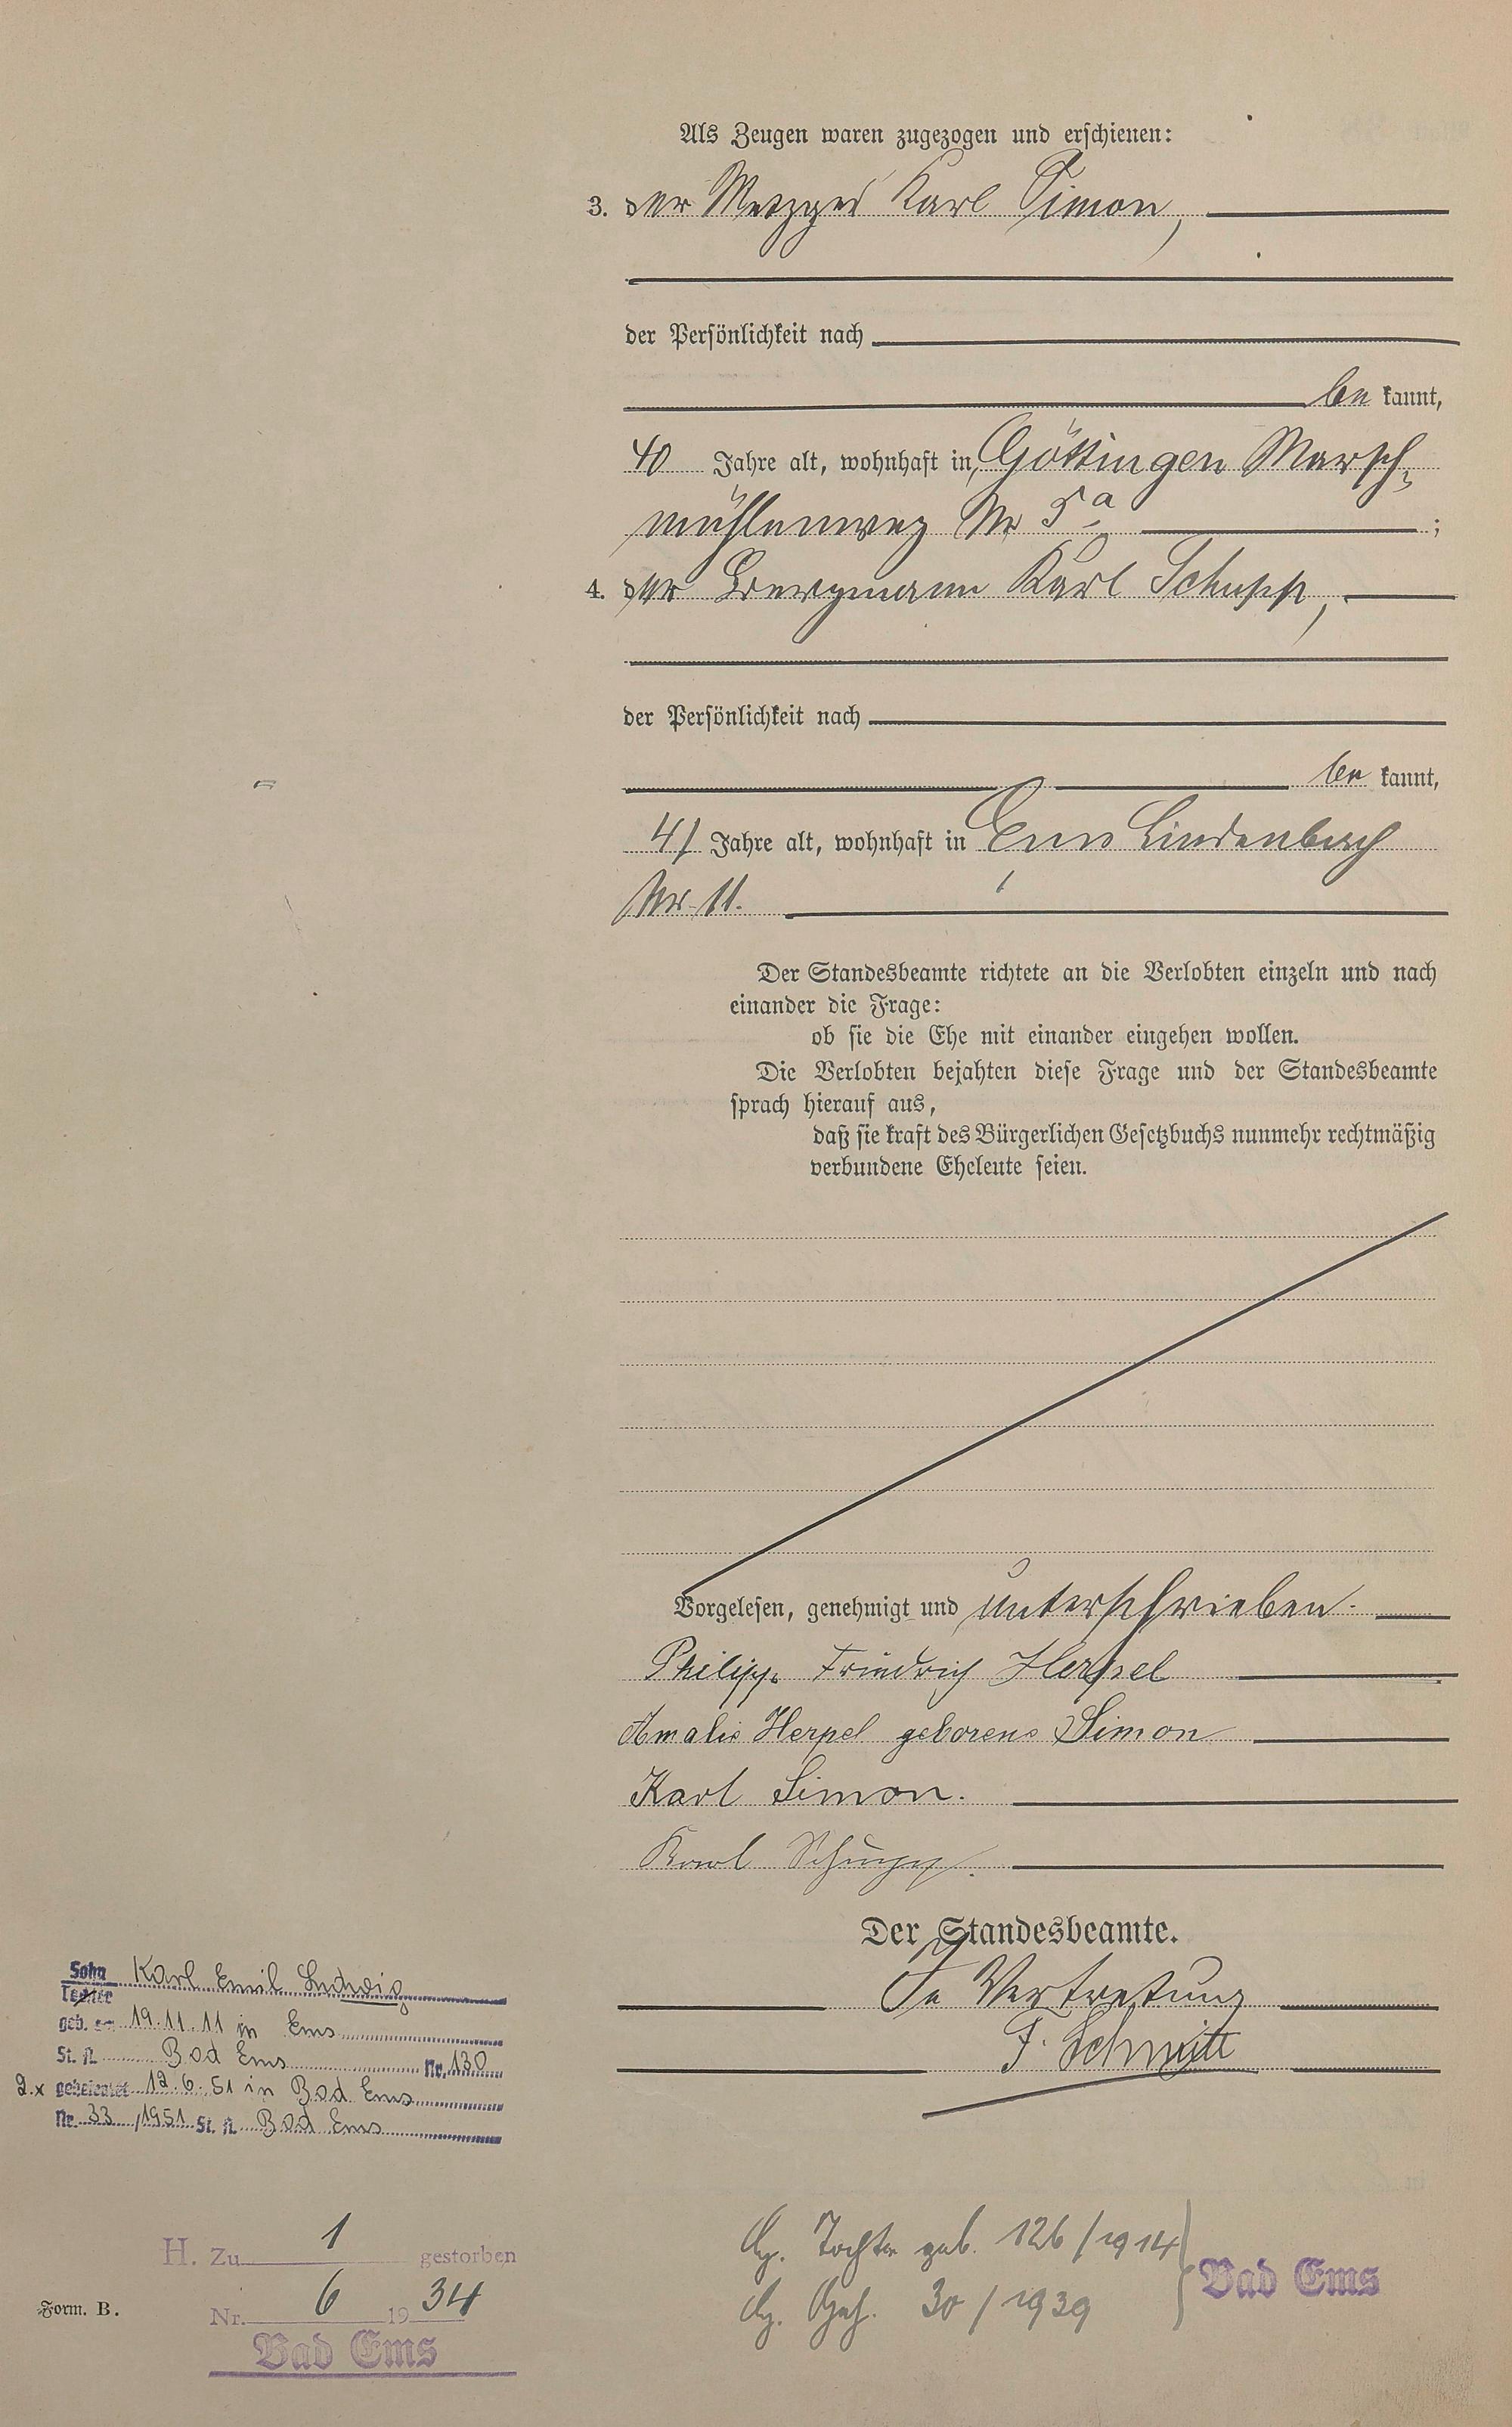 Als Zeugen waren zugezogen und erschienen:
3. der Metzger Karl Simon,
der Persönlichkeit nach
be kannt,
40 Jahre alt, wohnhaft in Göttingen Marsch-
mühlenweg Nr 5a ;
4. der Bergmann Karl Schupp,
der Persönlichkeit nach
be kannt,
41 Jahre alt, wohnhaft in Ems Lindenbach
Nr. 11.
Der Standesbeamte richtete an die Verlobten einzeln und nach
einander die Frage:
ob sie die Ehe mit einander eingehen wollen.
Die Verlobten bejahten diese Frage und der Standesbeamte
sprach hierauf aus,
daß sie kraft des Bürgerlichen Gesetzbuchs nunmehr rechtmäßig
verbundene Eheleute seien.
Vorgelesen, genehmigt und unterschrieben.
Philipp Friedrich Herpel
Amalie Herpel geborene Simon
Karl Simon.
Karl Schupp.
Der Standesbeamte.
In Vertretung
F. Schmitt
Sohn Karl Emil Ludwig
Tochter
geb. am 19.11.11 in Ems
St. A. Bad Ems Nr. 130
2.x geheiratet 12.6.51 in Bad Ems
Nr. 33/1951 St. A. Bad Ems
H. Zu 1 gestorben
Nr. 6 1934
Bad Ems
Form. B.
Tochter geb. 126/1914
30/1939
Bad Ems